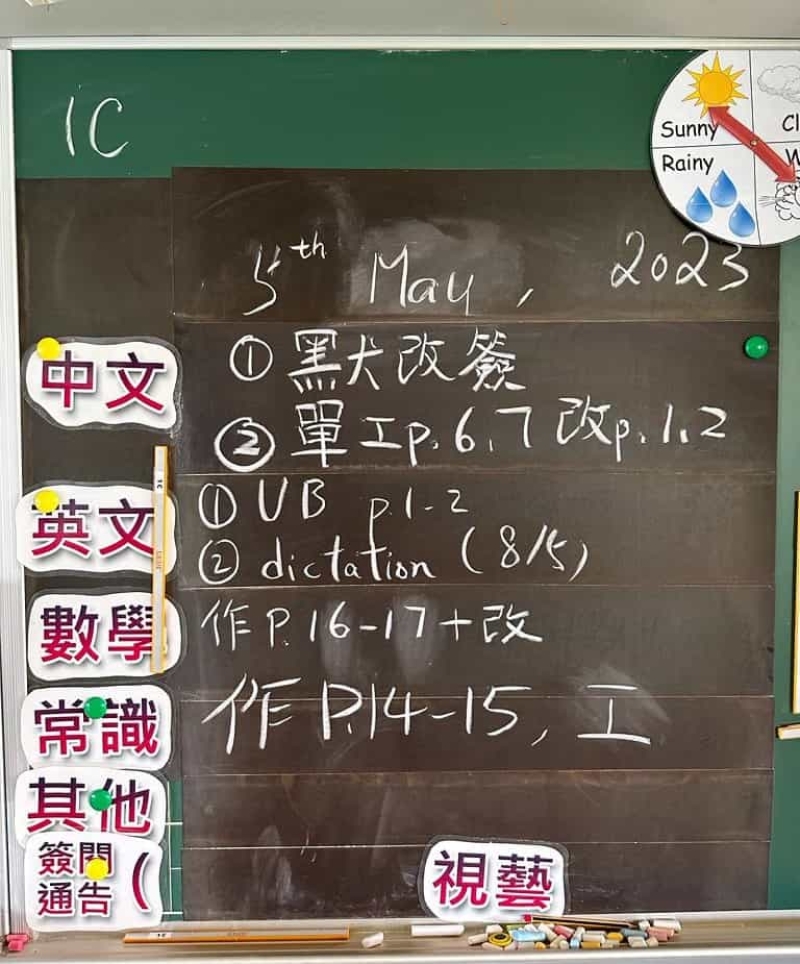 1C
Sunny
Cl
Rainy
W
5th May, 2023
中文
① 黑犬改簽
② 單工p.6,7 改p.1,2
英文
① UB p.1-2
② dictation (8/5)
數學
作P.16-17+改
常識
作P.14-15, 工
其他
簽閱
通告 (
視藝